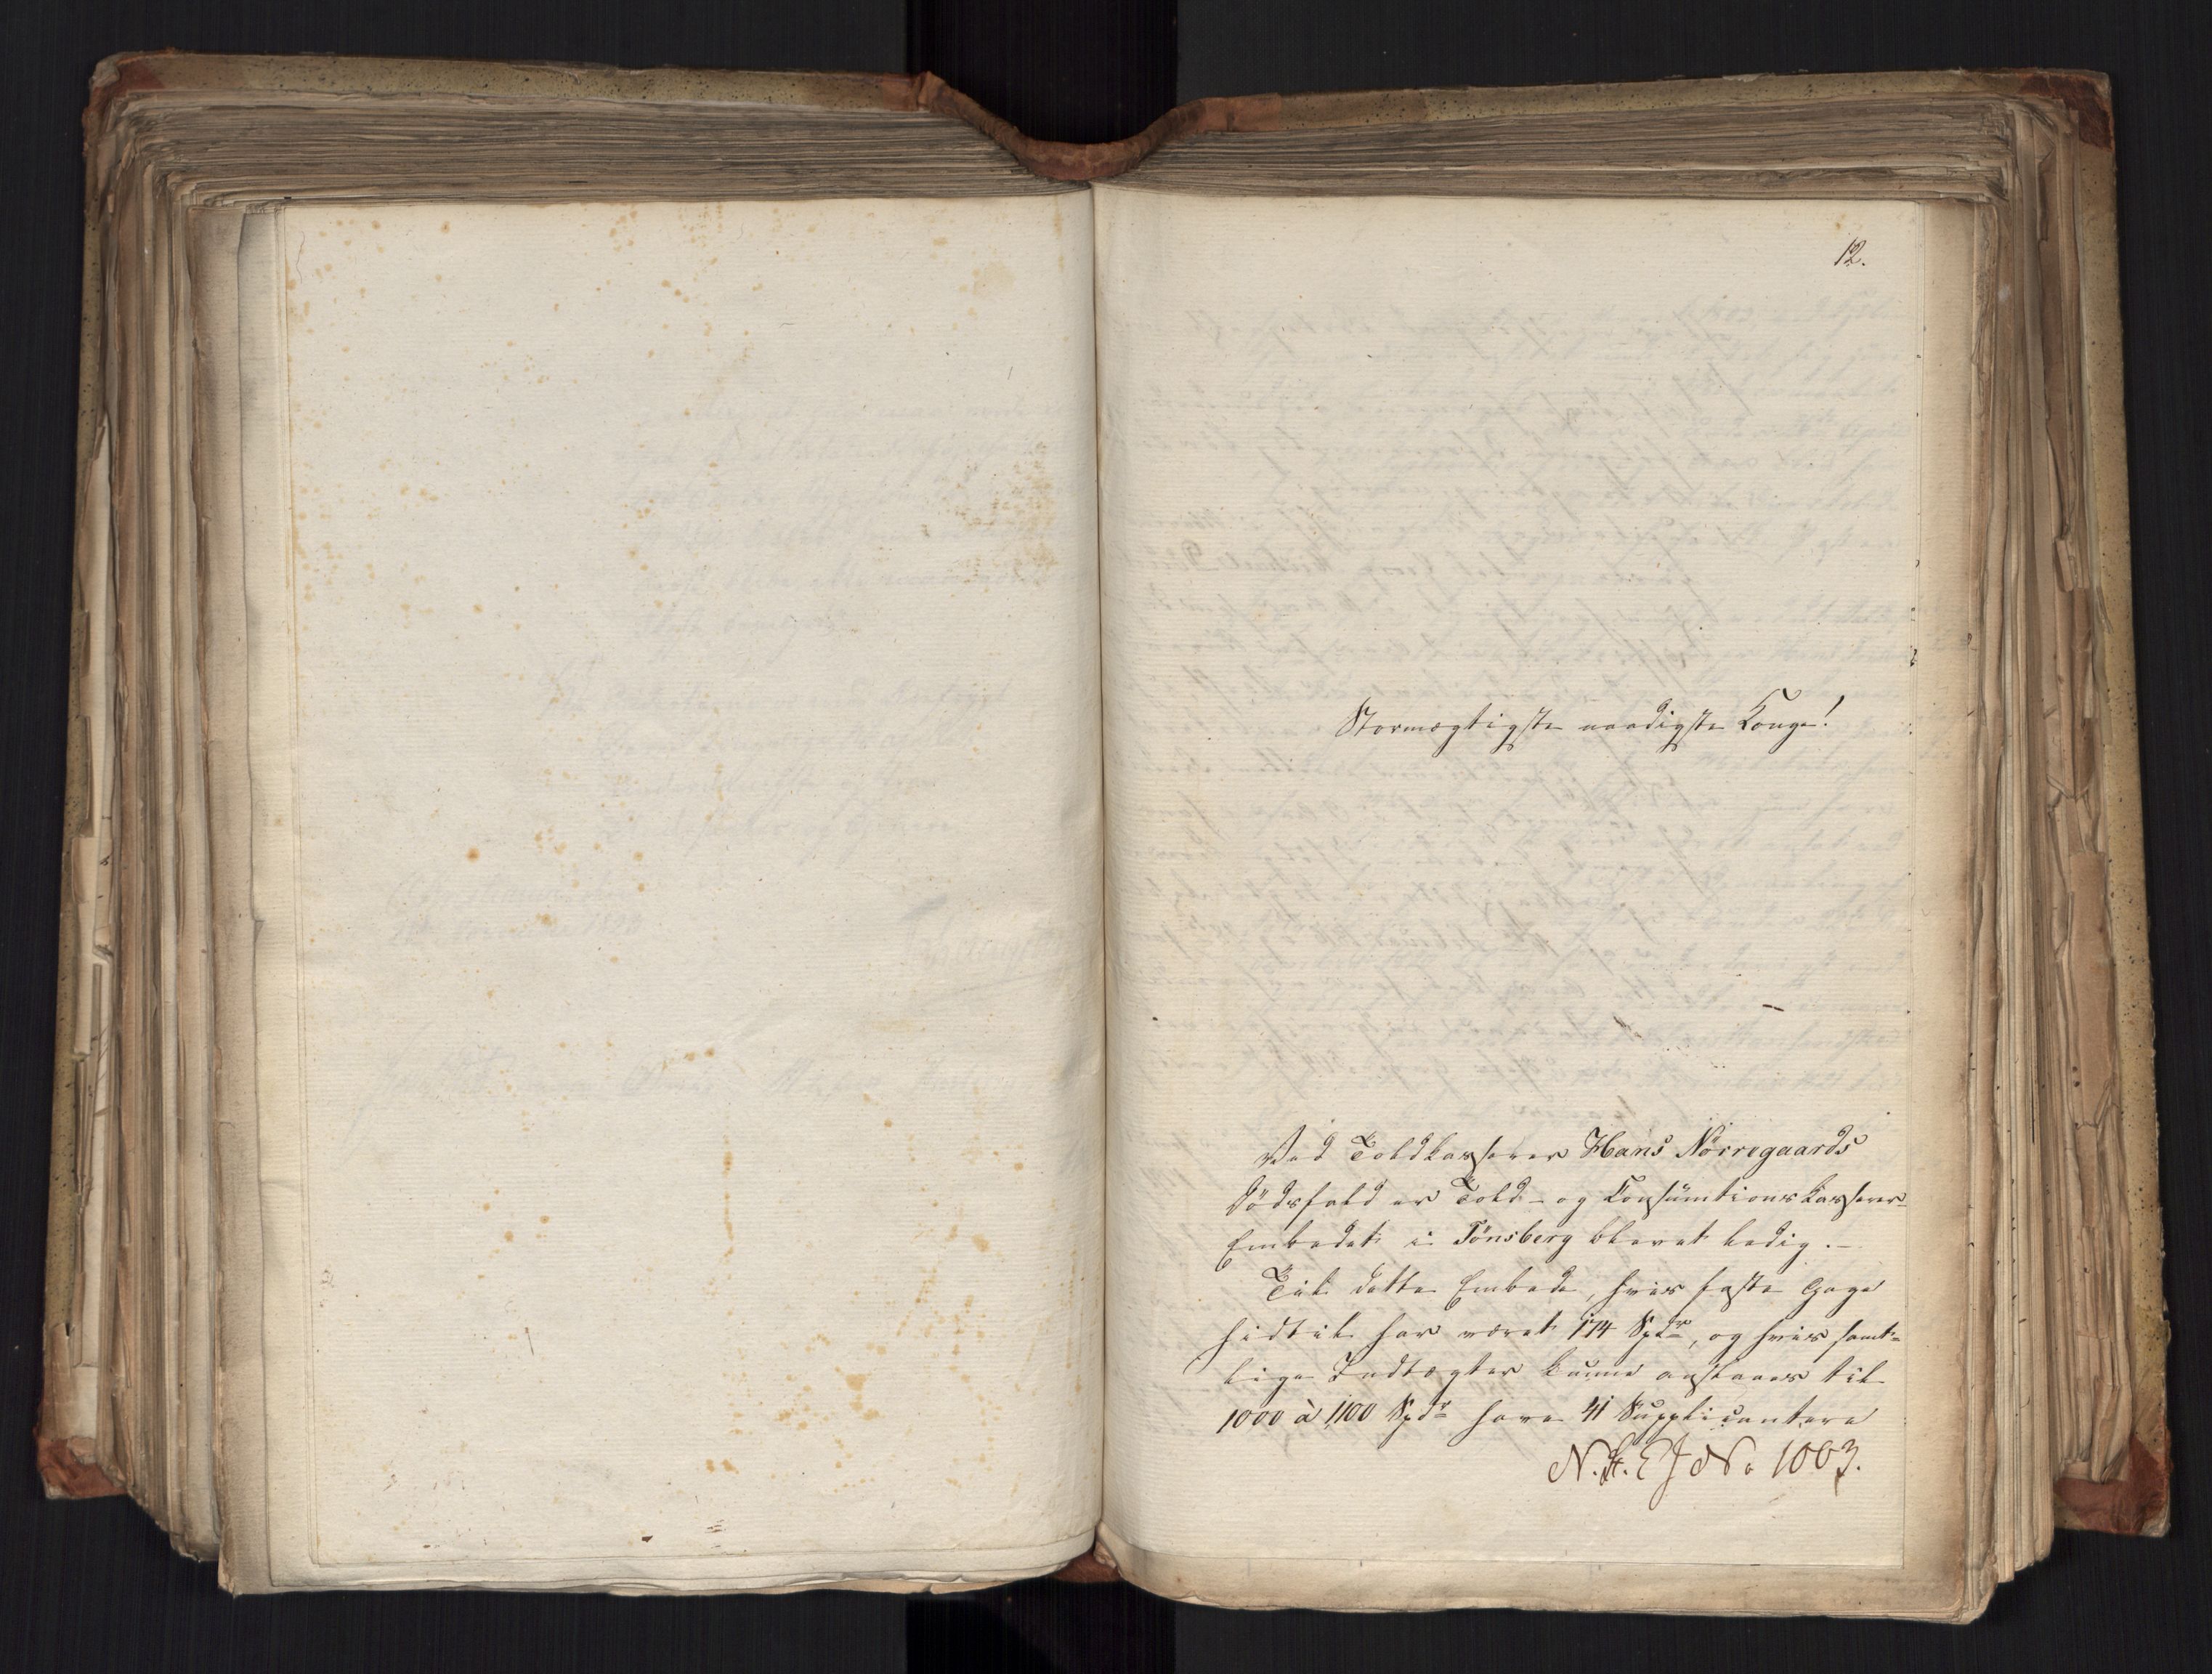 12.
Stormægtigste naadigste Konge!
Ved Toldkasserer Hans Nörregaards
Dödsfald er Told- og Consumtionskasserer-
Embedet i Tönsberg blevet ledig. –
Til dette Embede, hvis faste Gage
hidtil har været 174 Spdr, og hvis samt-
lige Indtægter kunne ansees til
1000 à 1100 Spdr have 41 Supplicantere
No 1003.